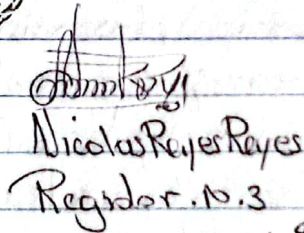 Nicolas Reyes Reyes
Regidor. N. 3